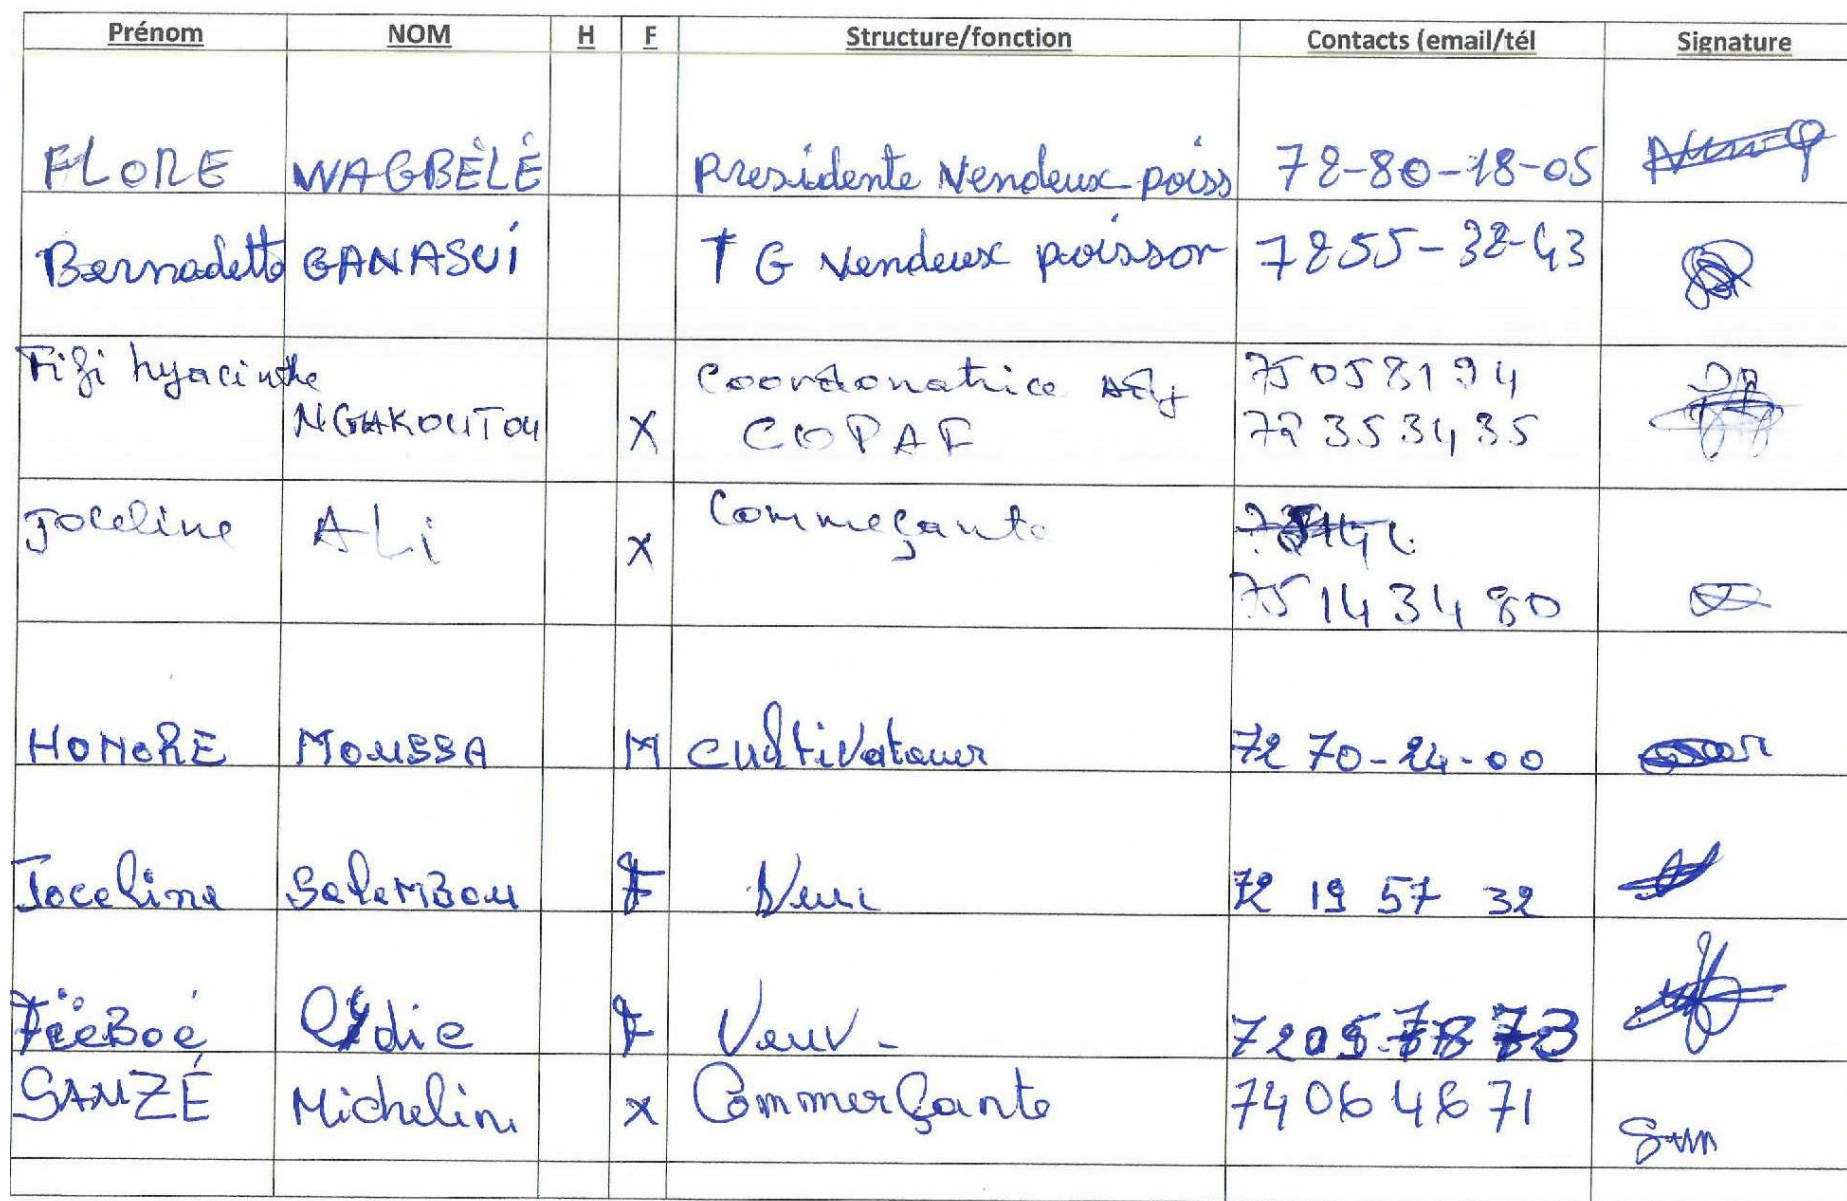 Prénom NOM H F Structure/fonction Contacts (email/tél Signature
FLORE WAGBÈLÉ Presidente Vendeux poiss 72-80-18-05
Bernadette GANASUI T G Vendeux poisson 7255-32-43
Fifi hyacinthe Coordonatrice 75058194
NGAKOUTOU X COPAF 72353435
Joceline ALi X Commeçante
75143480
HONORE MOUSSA M Cultivatauer 72 70-24-00
Joceline SaleMBou F Veuv 72 19 57 32
Lydie F Veuv - 7205 78 73
SANZÉ Micheline X Commerçante 74064671